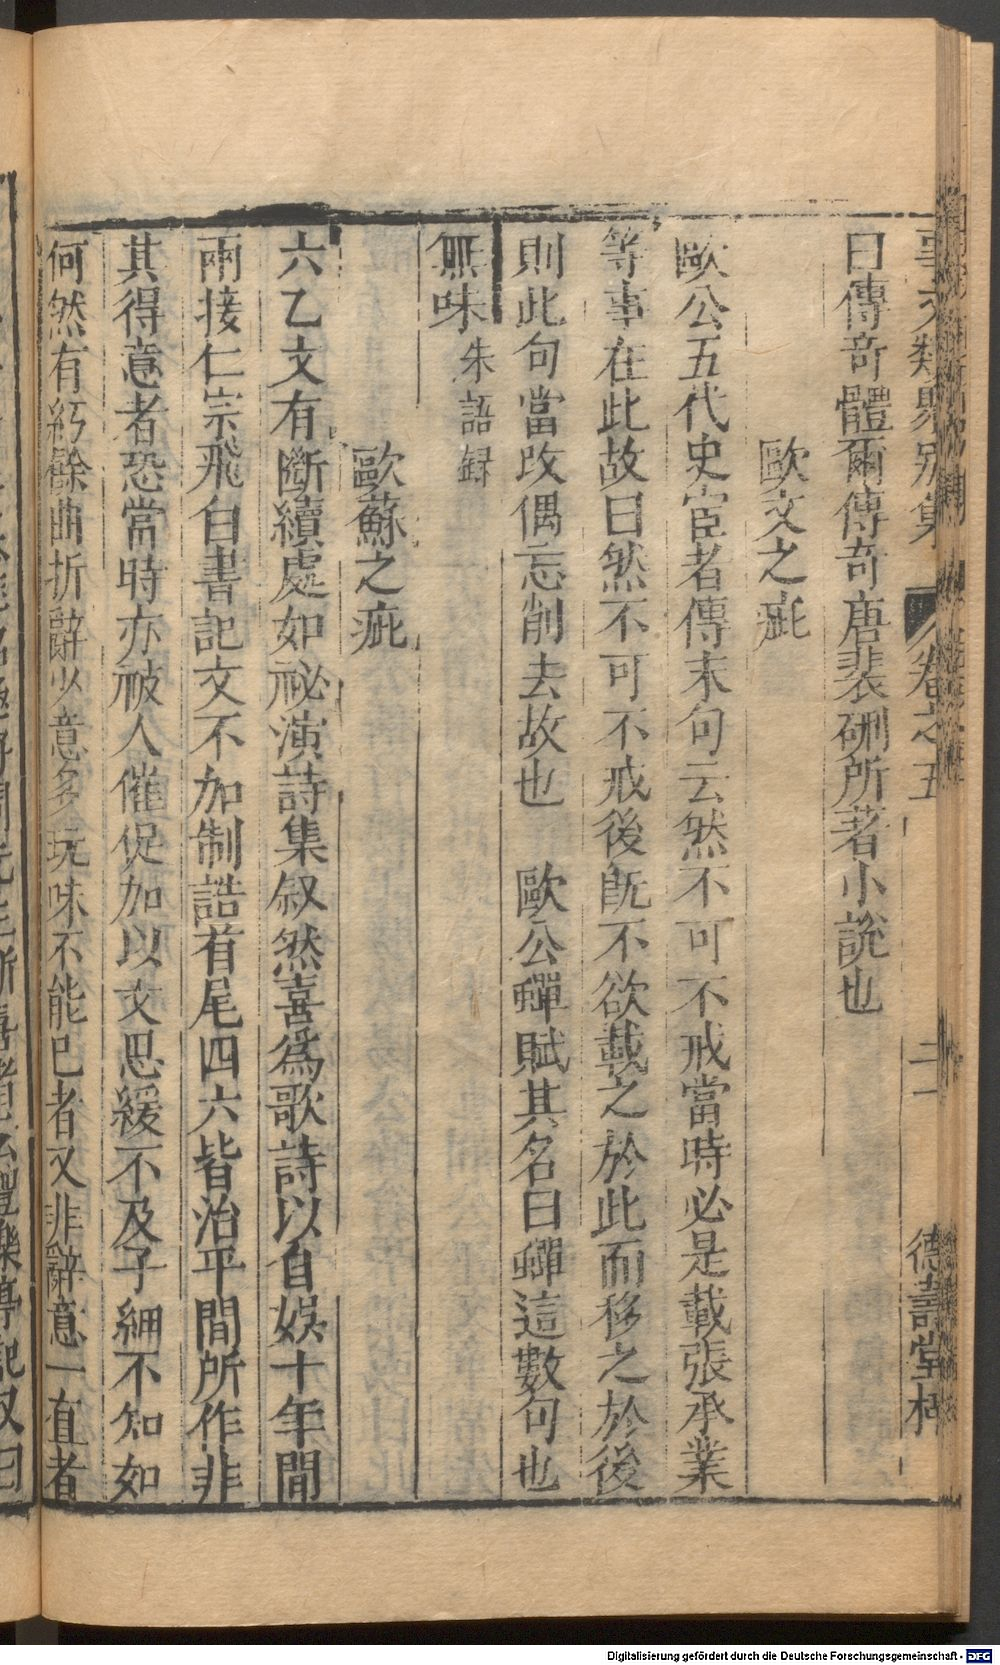 事文類聚別集 卷之五 二 德壽堂梓
曰傳奇體爾傳奇唐裴硎所著小說也
歐文之疵
歐公五代史宦者傳末句云然不可不戒當時必是載張承業
等事在此故曰然不可不戒後旣不欲載之於此而移之於後
則此句當改偶忘削去故也 歐公蟬賦其名曰蟬這數句也
無味朱語録
歐蘇之疵
六乙文有斷續處如祕演詩集叙然喜爲歌詩以自娛十年間
兩接仁宗飛白書記文不加制誥首尾四六皆治平間所作非
其得意者恐當時亦被人催促加以文思緩不及子細不知如
何然有紆餘曲折辭少意多玩味不能已者又非辭意一直者
Digitalisierung gefördert durch die Deutsche Forschungsgemeinschaft - DFG